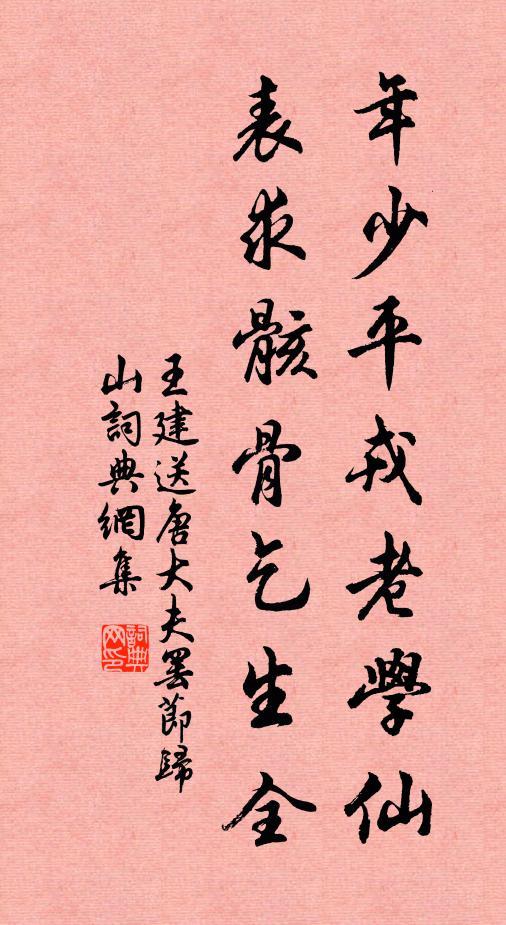 年少平戎老學仙
表求骸骨乞生全
王建送唐大夫罷節歸
山詞典網集
詞典网印